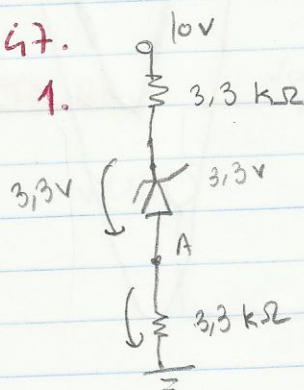 47.
1.
10V
3,3 kΩ
3,3V
3,3V
A
3,3 kΩ